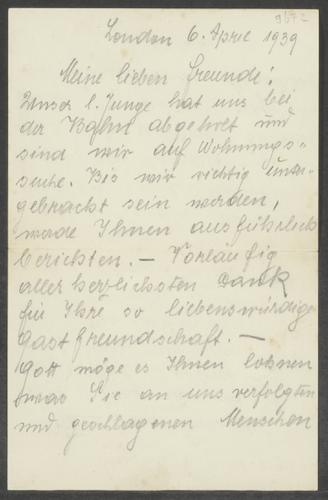 9672
London 6. April 1939
Meine lieben Freunde!
Unser l. Junge hat uns bei
der Bahn abgeholt und
sind wir auf Wohnungs-
suche. Bis wir richtig unter-
gebracht sein werden,
werde Ihnen ausführlich
berichten. — Vorläufig
allerherzlichsten Dank
für Ihre so liebenswürdige
Gastfreundschaft. —
Gott möge es Ihnen lohnen
was Sie an uns verfolgten
und geschlagenen Menschen